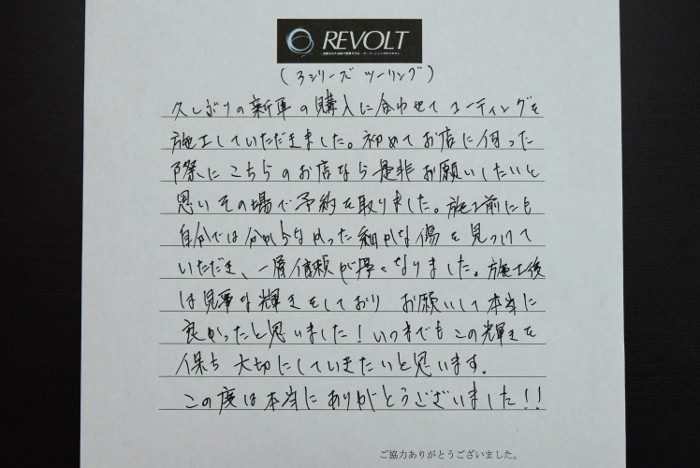 REVOLT
(3シリーズ ツーリング)
久しぶりの新車の購入に合わせてコーティングを
施工していただきました。初めてお店に伺った
際にこちらのお店なら是非お願いしたいと
思いその場で予約を取りました。施工前にも
自分では分からなかった細かな傷を見つけて
いただき、一層信頼が厚くなりました。施工後
は見事な輝きをしており お願いして本当に
良かったと思いました!いつまでもこの輝きを
保ち 大切にしていきたいと思います.
この度は本当にありがとうございました!!
ご協力ありがとうございました。